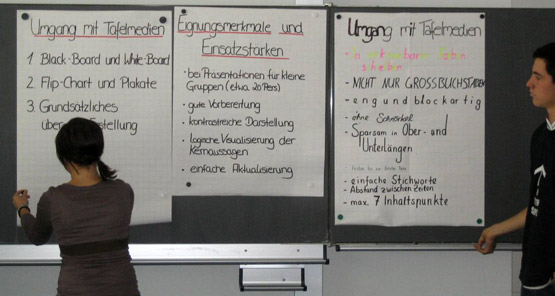 Umgang mit Tafelmedien
1 Black-Board und White-Board
2. Flip-Chart und Plakate
3. Grundsätzliches
Eignungsmerkmale und
Einsatzstärken
• bei Präsentationen für kleine
Gruppen (etwa 20 Pers)
• gute Vorbereitung
• kontrastreiche Darstellung
• logische Visualisierung der
Kernaussagen
• einfache Aktualisierung
Umgang mit Tafelmedien
- in erkennbaren Farben
schreiben
- NICHT NUR GROSSBUCHSTABEN
- eng und blockartig
- ohne Schnörkel
- Sparsam in Ober- und
Unterlängen
- einfache Stichworte
- Abstand zwischen Zeilen
- max. 7 Inhaltspunkte